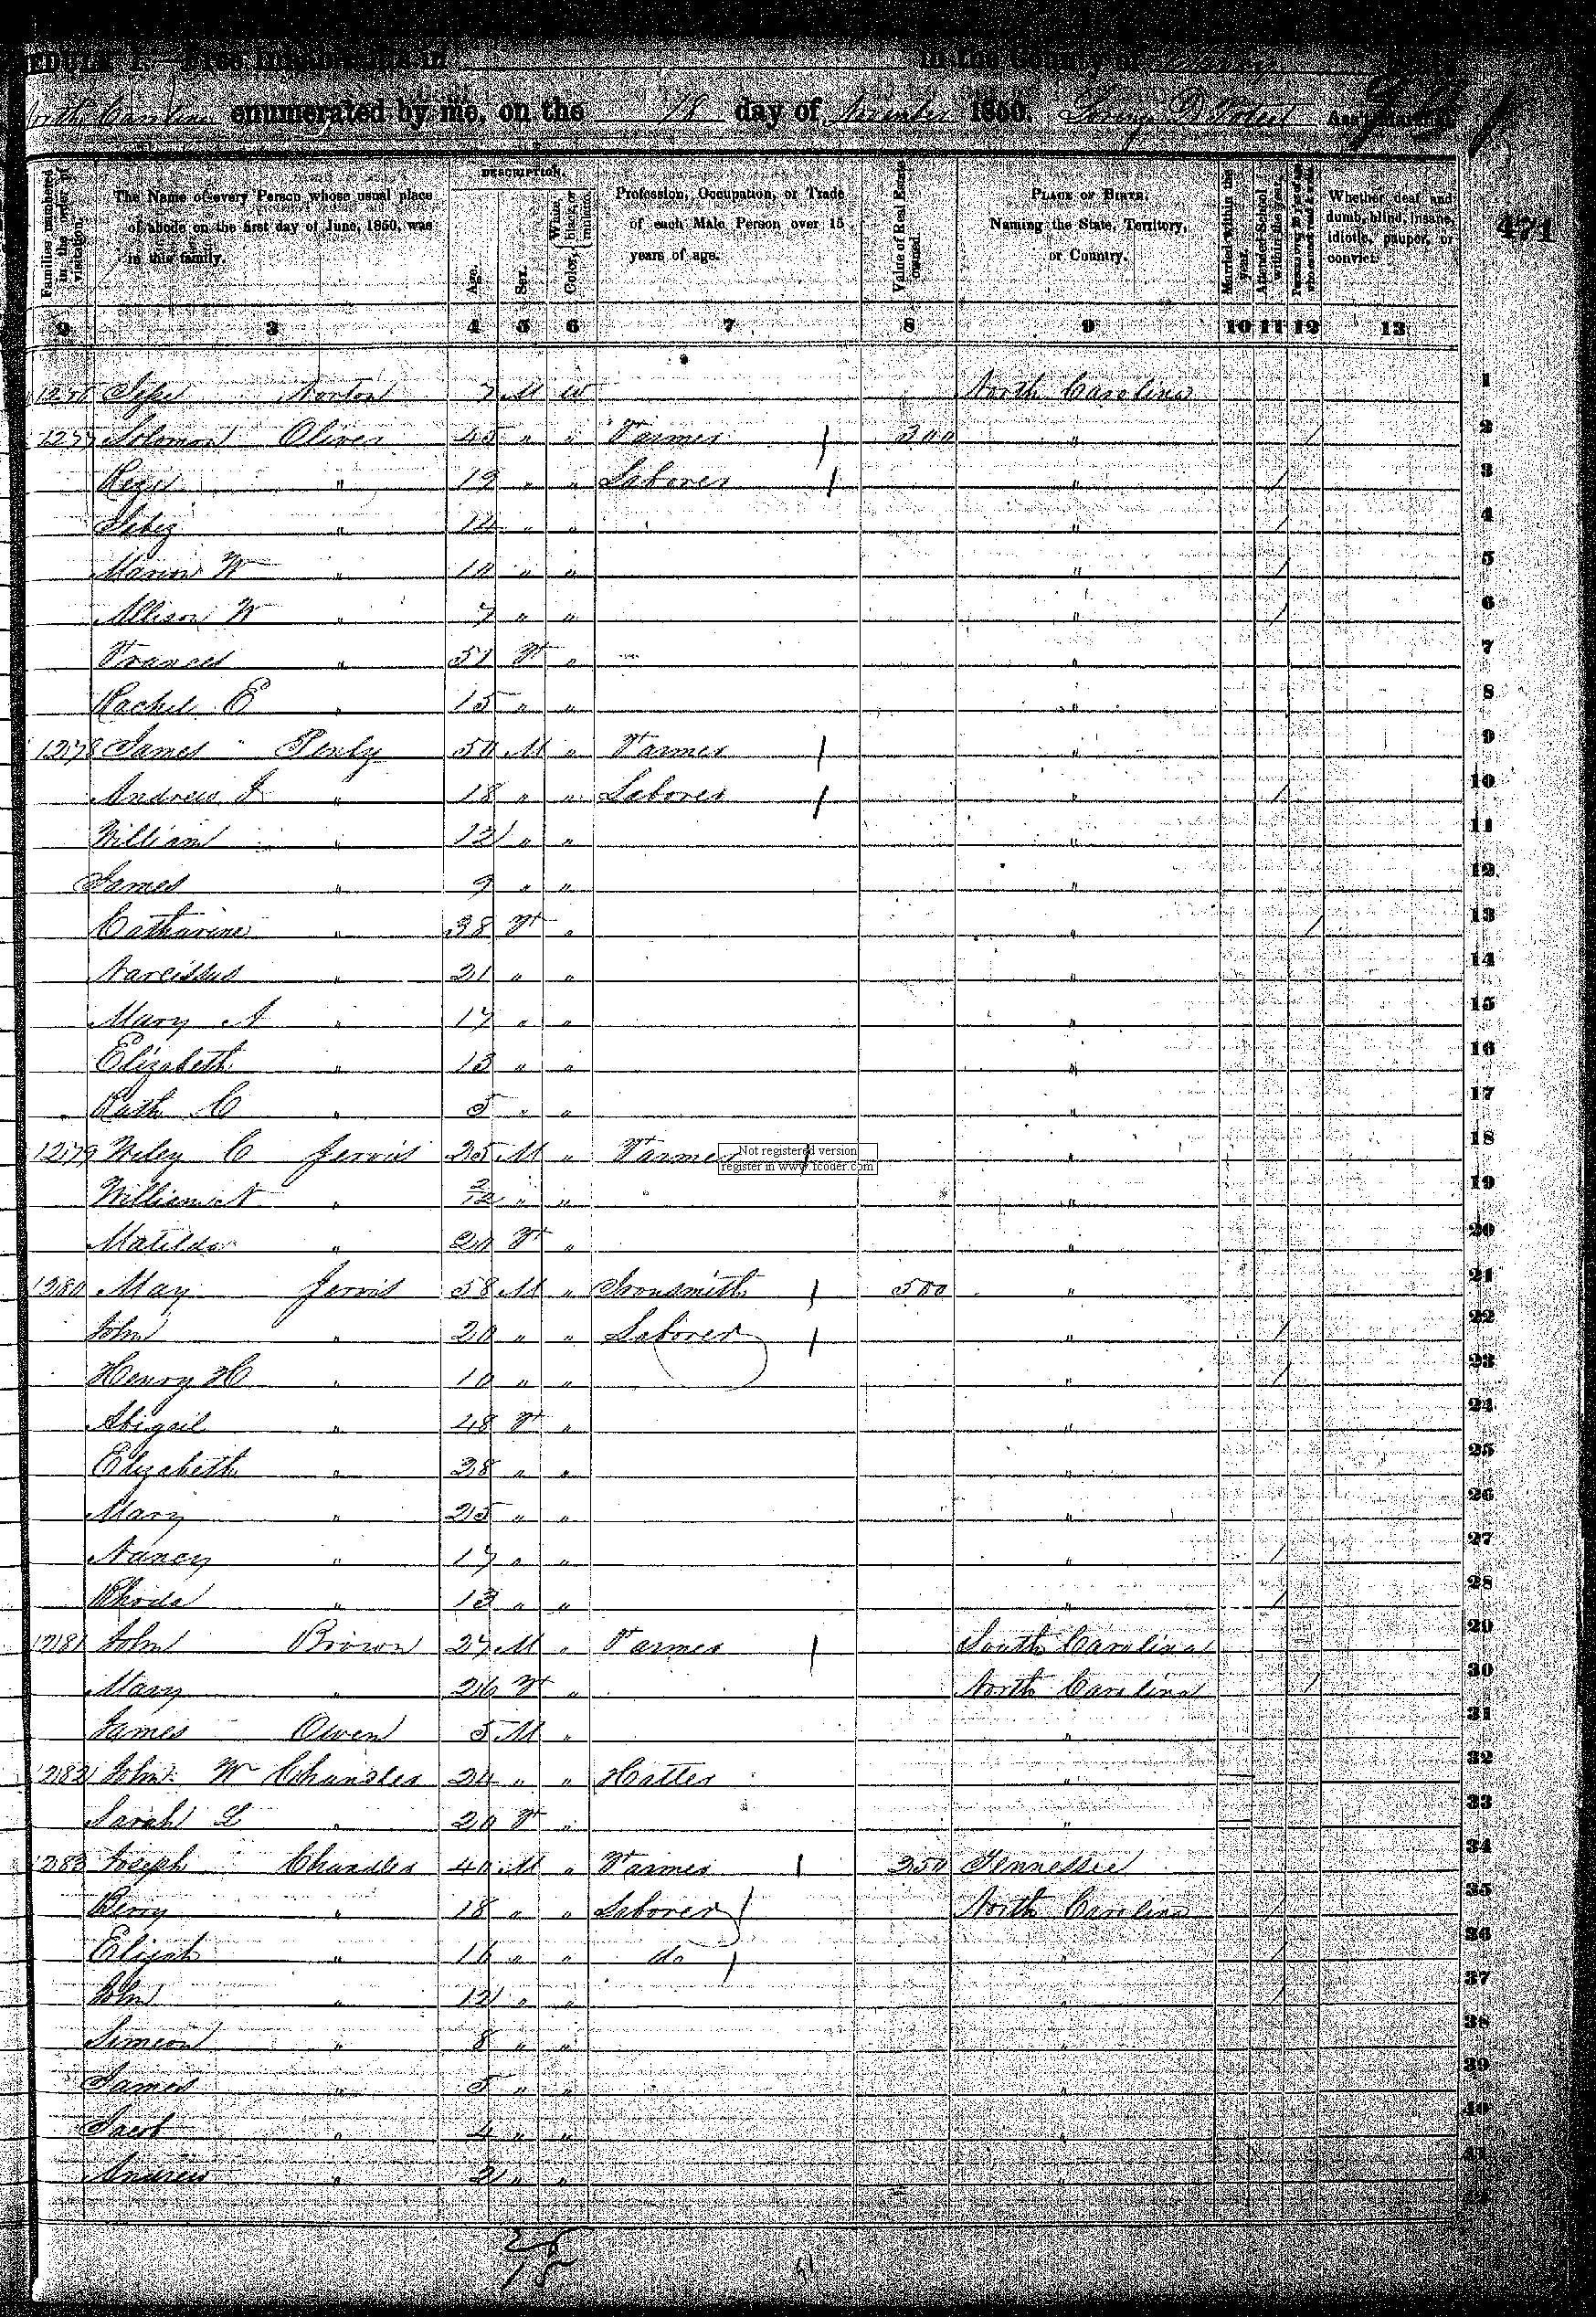 EDULE I.—Free Inhabitants in in the County of
North Carolina enumerated by me, on the 18 day of November 1850. Ass't Marshal.
Families numbered in the order of visitation.
The Name of every Person whose usual place of abode on the first day of June, 1850, was in this family.
DESCRIPTION.
Age.
Sex.
Color, White, black, or mulatto.
Profession, Occupation, or Trade of each Male Person over 15 years of age.
Value of Real Estate owned.
PLACE OF BIRTH. Naming the State, Territory, or Country.
Married within the year.
Attended School within the year.
Whether deaf and dumb, blind, insane, idiotic, pauper, or convict.
471
2 3 4 5 6 7 8 9 10 11 12 13
Norton 7 M W North Carolina 1
1277 Solomon Oliver 45 " " Farmer 300 " / 2
" 19 " " Laborer " / 3
" 14 " " " / 4
Marion W " 10 " " " / 5
Allison W " 7 " " " / 6
Frances " 51 F " " 7
Rachel E " 15 " " " 8
1278 James Penly 50 M " Farmer " 9
Andrew J " 18 " " Laborer " / 10
William " 12 " " " 11
James " 9 " " " 12
Catharine " 38 F " " / 13
Narcissus " 21 " " " 14
Mary A " 17 " " " 15
Elizabeth " 13 " " " 16
Ruth C " 5 " " " 17
1279 Wiley C Jervis 25 M " Farmer " 18
Not registered version
register in www.tcoder.com
William N " 2/12 " " " 19
Matilda " 20 F " " 20
1280 May Jervis 58 M " Ironsmith 500 " 21
John " 20 " " Laborer " / 22
Henry H " 10 " " " / 23
Abigail " 48 F " " 24
Elizabeth " 28 " " " 25
Mary " 25 " " " 26
Nancy " 17 " " " / 27
Rhoda " 13 " " " / 28
1281 John Brown 27 M " Farmer South Carolina 29
Mary " 26 F " North Carolina / 30
James Owen 5 M " " 31
1282 John W Chandler 24 " " Hatter " 32
Sarah L " 20 F " " 33
1283 Joseph Chandler 40 M " Farmer 250 Tennessee 34
Berry " 18 " " Laborer North Carolina / 35
Elijah " 16 " " do " / 36
John " 12 " " " / 37
Simeon " 8 " " " 38
James " 5 " " " 39
Jacob " 4 " " " 40
Andrew " 2 " " " 41